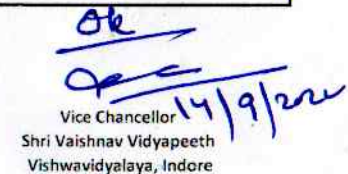 Ok
Vice Chancellor 14/9/2020
Shri Vaishnav Vidyapeeth
Vishwavidyalaya, Indore